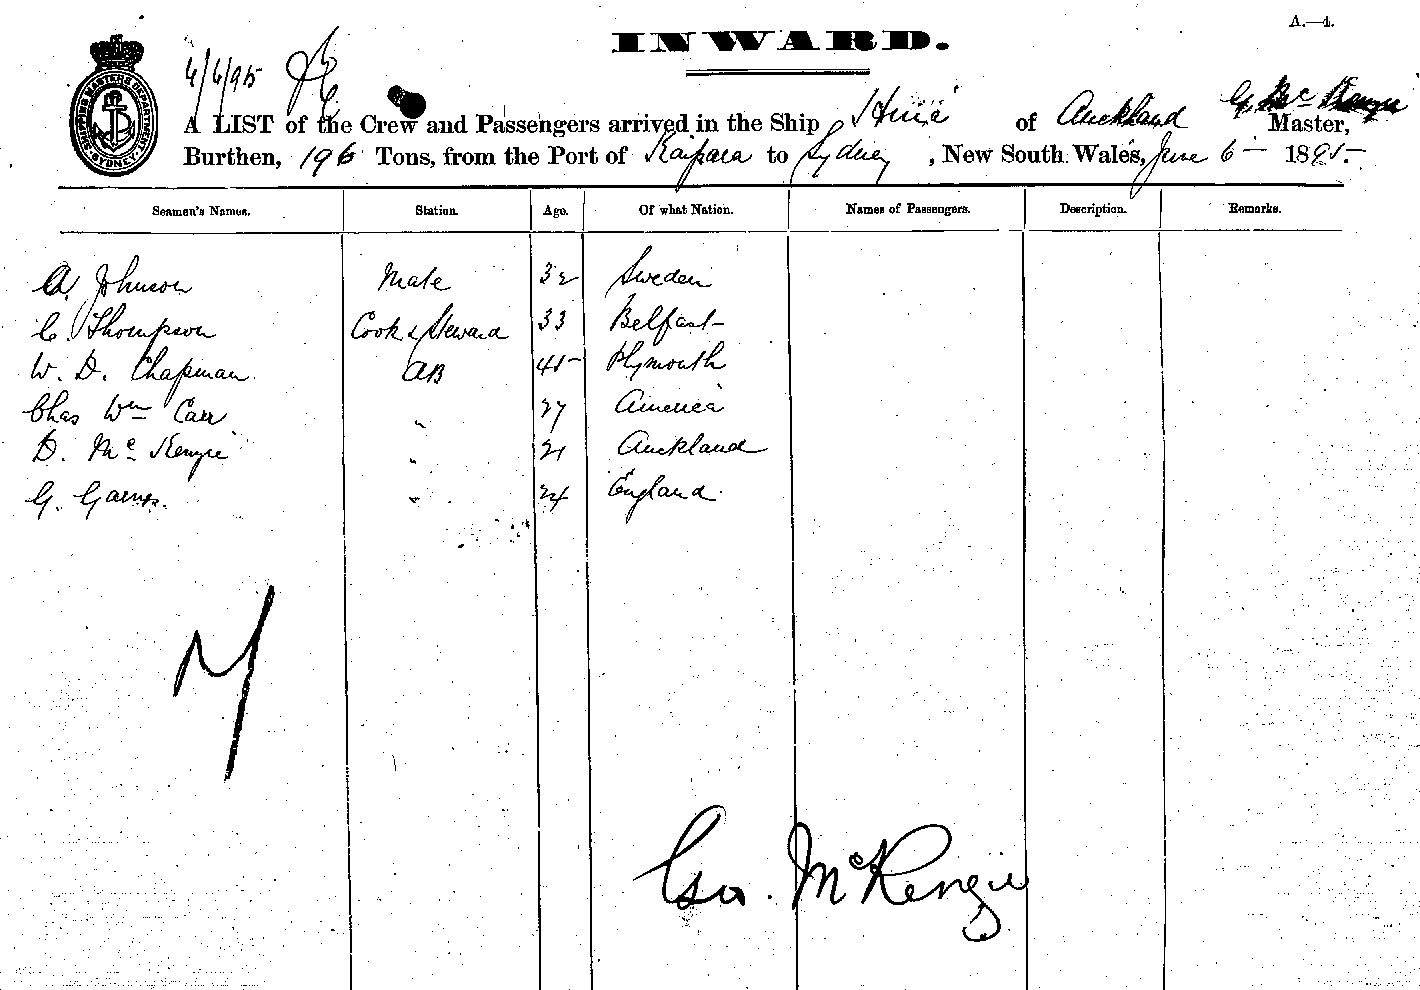 A.—4.
INWARD.
SHIPPING MASTERS DEPARTMENT SYDNEY
6/6/95
A LIST of the Crew and Passengers arrived in the Ship Hine of Auckland G. McKenzie Master,
Burthen, 196 Tons, from the Port of Kaipara to Sydney, New South Wales, June 6 — 1895.
Seamen's Names. Station. Age. Of what Nation. Names of Passengers. Description. Remarks.
A. Johnson Mate 32 Sweden
C. Thompson Cook & Steward 33 Belfast
W. D. Chapman AB 45 Plymouth
Chas Wm Carr " 27 America
D. McKenzie " 21 Auckland
G. " 24 England
Geo. McKenzie